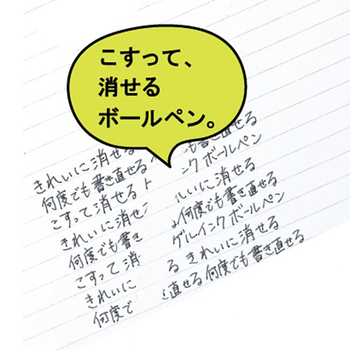 こすって、
消せる
ボールペン。
きれいに消せる も書き直せる
何度でも書き直せる ンク ボールペン
こすって消せる いに消せる
きれいに消せ 何度でも書き直せる
何度でも書き ゲルインク ボールペン
こすって消 る きれいに消せる
きれいに 直せる何度でも書き直せる
何度で